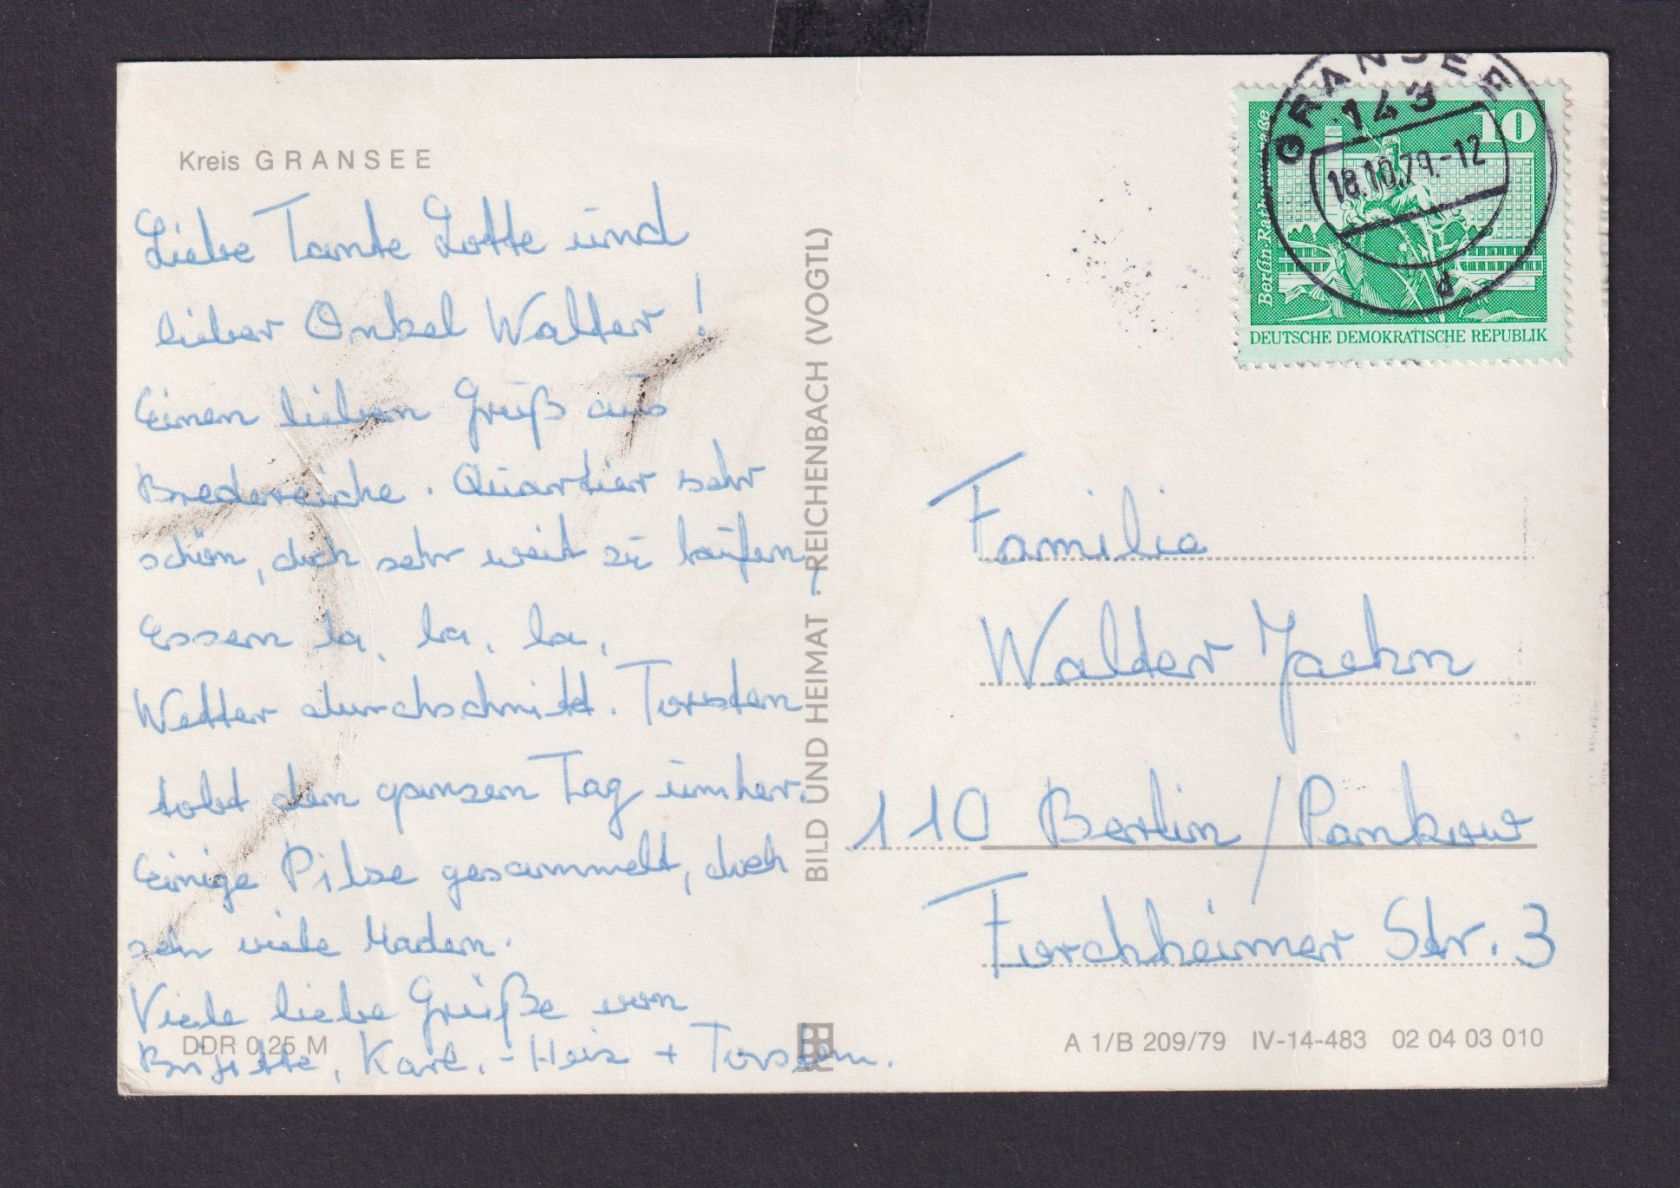 Kreis GRANSEE
Liebe Tante Lotte und
lieber Onkel Walter!
Einen lieben Gruß aus
Bredereiche. Quartier sehr
schön, doch sehr weit zu laufen,
Essen la, la, la,
Wetter durchschnitt. Torsten
tobt den ganzen Tag umher.
Einige Pilze gesammelt, doch
sehr viele Maden.
Viele liebe Grüße von
Brigitte, Karl.-Heiz + Torsten.
DDR 0,25 M
BILD UND HEIMAT · REICHENBACH (VOGTL)
GRANSEE
143
18.10.79.-12
d
10
Berlin-Rathausstraße
DEUTSCHE DEMOKRATISCHE REPUBLIK
Familie
Walter Jaehn
110 Berlin/Pankow
Forchheimer Str. 3
A 1/B 209/79 IV-14-483 02 04 03 010